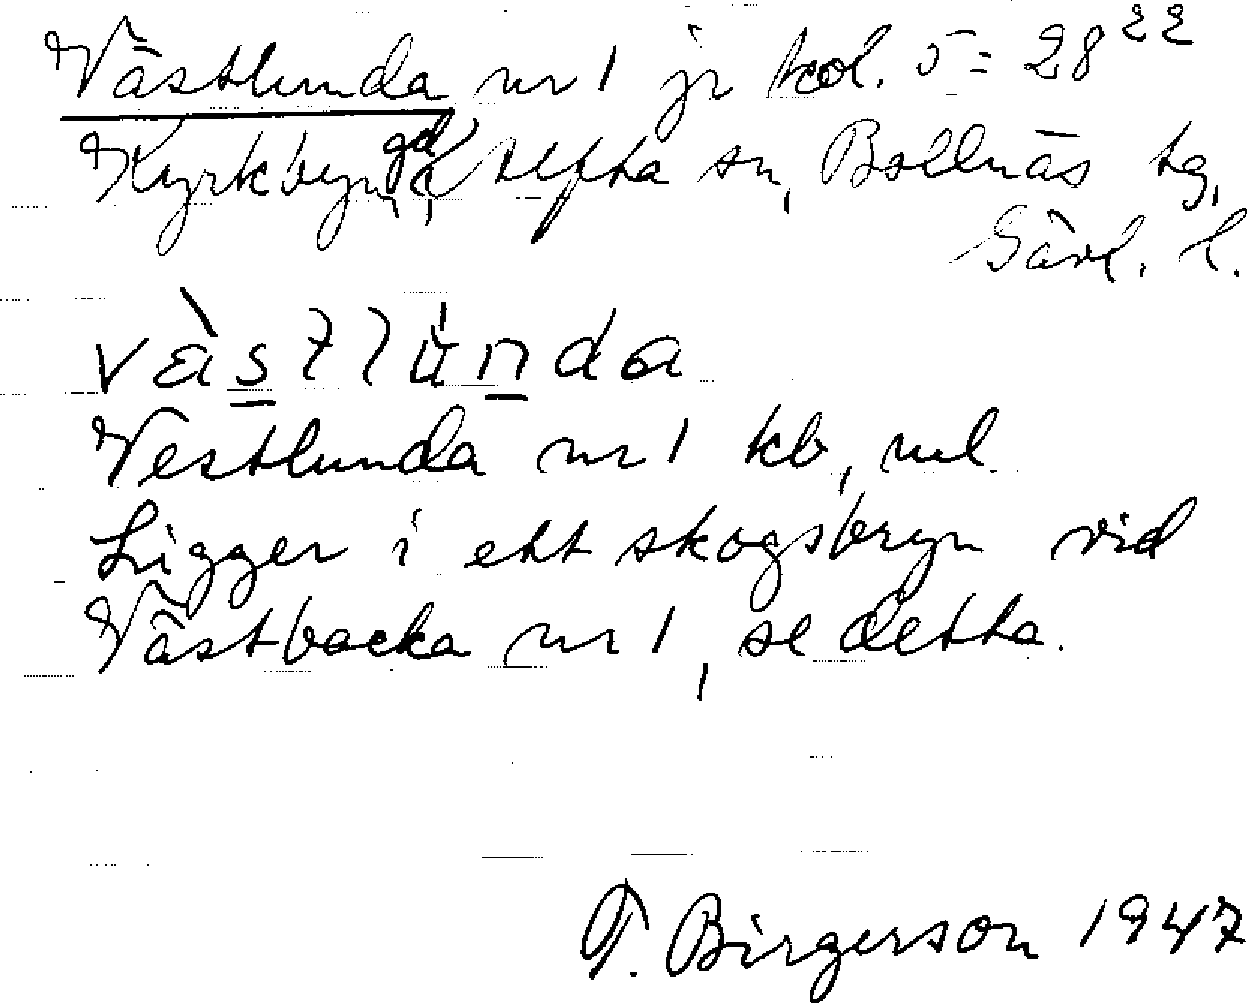 Västlunda nr 1 jr kol. 5 = 28²²
Kyrkbyn, gd, Alfta sn, Bollnäs tg,
Gävl. l.
vàs
Vestlunda nr 1 kb, ml
Ligger i ett skogsbryn vid
Västbacka nr 1, se detta.
T. Birgerson 1947